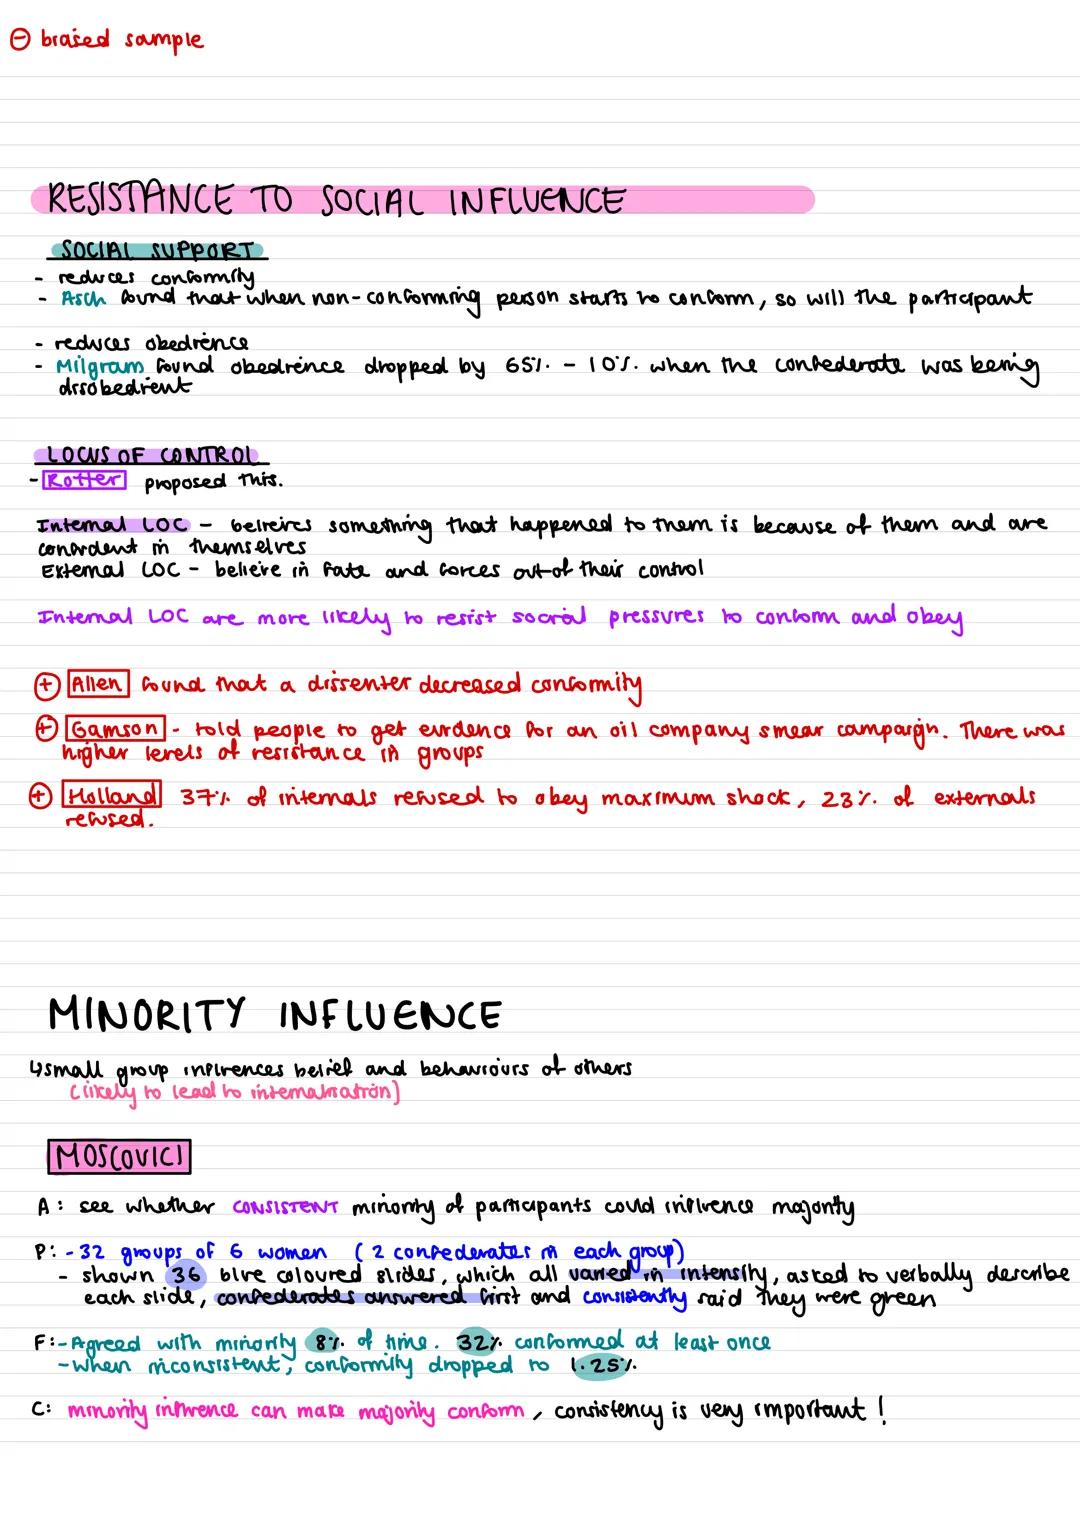 ⊖ biased sample
RESISTANCE TO SOCIAL INFLUENCE
SOCIAL SUPPORT
- reduces conformity
- Asch found that when non-conforming person starts to conform, so will the participant
- reduces obedience
- Milgram found obedience dropped by 65% - 10% when the confederate was being
disobedient
LOCUS OF CONTROL
- Rotter proposed this.
Internal LOC - believes something that happened to them is because of them and are
confident in themselves
External LOC - believe in fate and forces out of their control
Internal LOC are more likely to resist social pressures to conform and obey
⊕ Allen found that a dissenter decreased conformity
⊕ Gamson - told people to get evidence for an oil company smear campaign. There was
higher levels of resistance in groups
⊕ Holland 37% of internals refused to obey maximum shock, 23% of externals
refused.
MINORITY INFLUENCE
↳ small group influences belief and behaviours of others
(likely to lead to internalisation)
MOSCOVICI
A: see whether CONSISTENT minority of participants could influence majority
P: - 32 groups of 6 women (2 confederates in each group)
- shown 36 blue coloured slides, which all varied in intensity, asked to verbally describe
each slide, confederates answered first and consistently said they were green
F: - Agreed with minority 8% of time. 32% conformed at least once
- When inconsistent, conformity dropped to 1.25%
C: minority influence can make majority conform, consistency is very important!